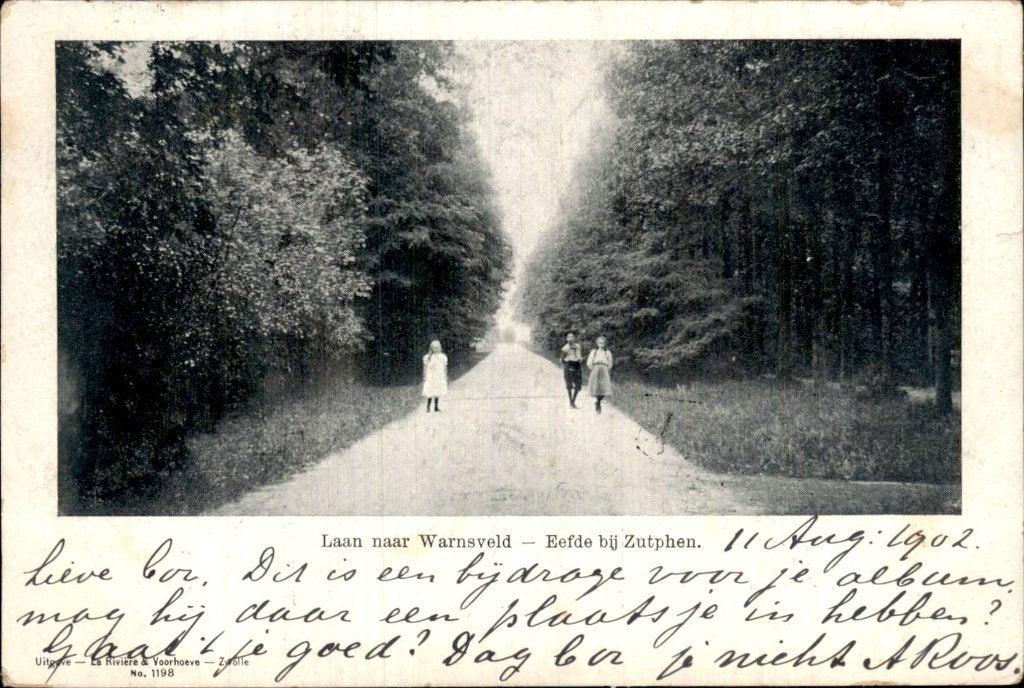 Laan naar Warnsveld — Eefde bij Zutphen.
11 Aug: 1902.
Lieve Cor. Dit is een bijdrage voor je album.
mag hij daar een plaatsje in hebben?
Gaat 't je goed? Dag Cor je nicht A Roos.
Uitgave — La Rivière & Voorhoeve — Zwolle
No. 1198